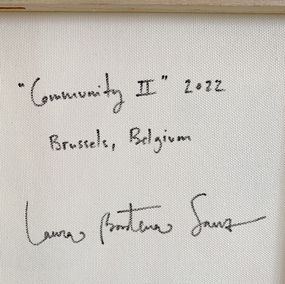 "Community II" 2022
Brussels, Belgium
Laura Bonteria Sanz